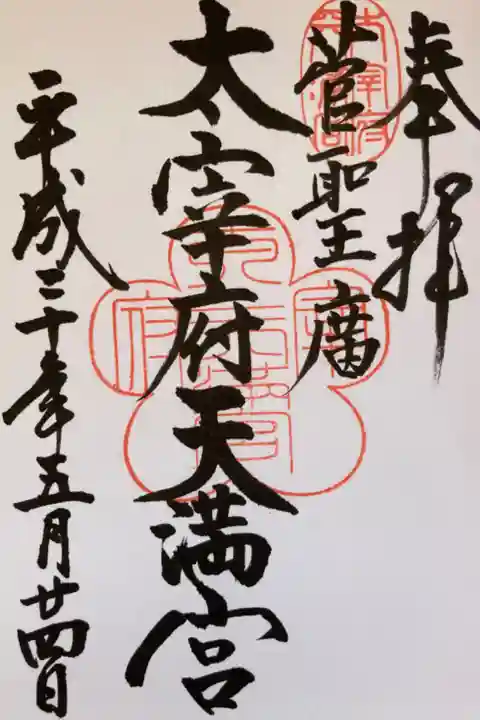 奉拝
菅聖廟
太宰府天満宮
平成三十年五月廿四日